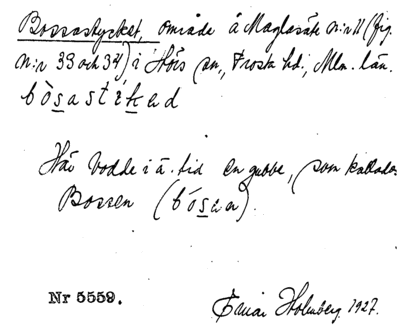 Bossastycket, område å Maglasäte n:r 11 (fig.
n:r 33 och 34) i Hörs sn., Frosta hd., Mlm. län.
bòsastikad
Här bodde i ä. tid en gubbe, som kallades
Bossen (bòsen).
Nr 5559.
Einar Holmberg 1927.